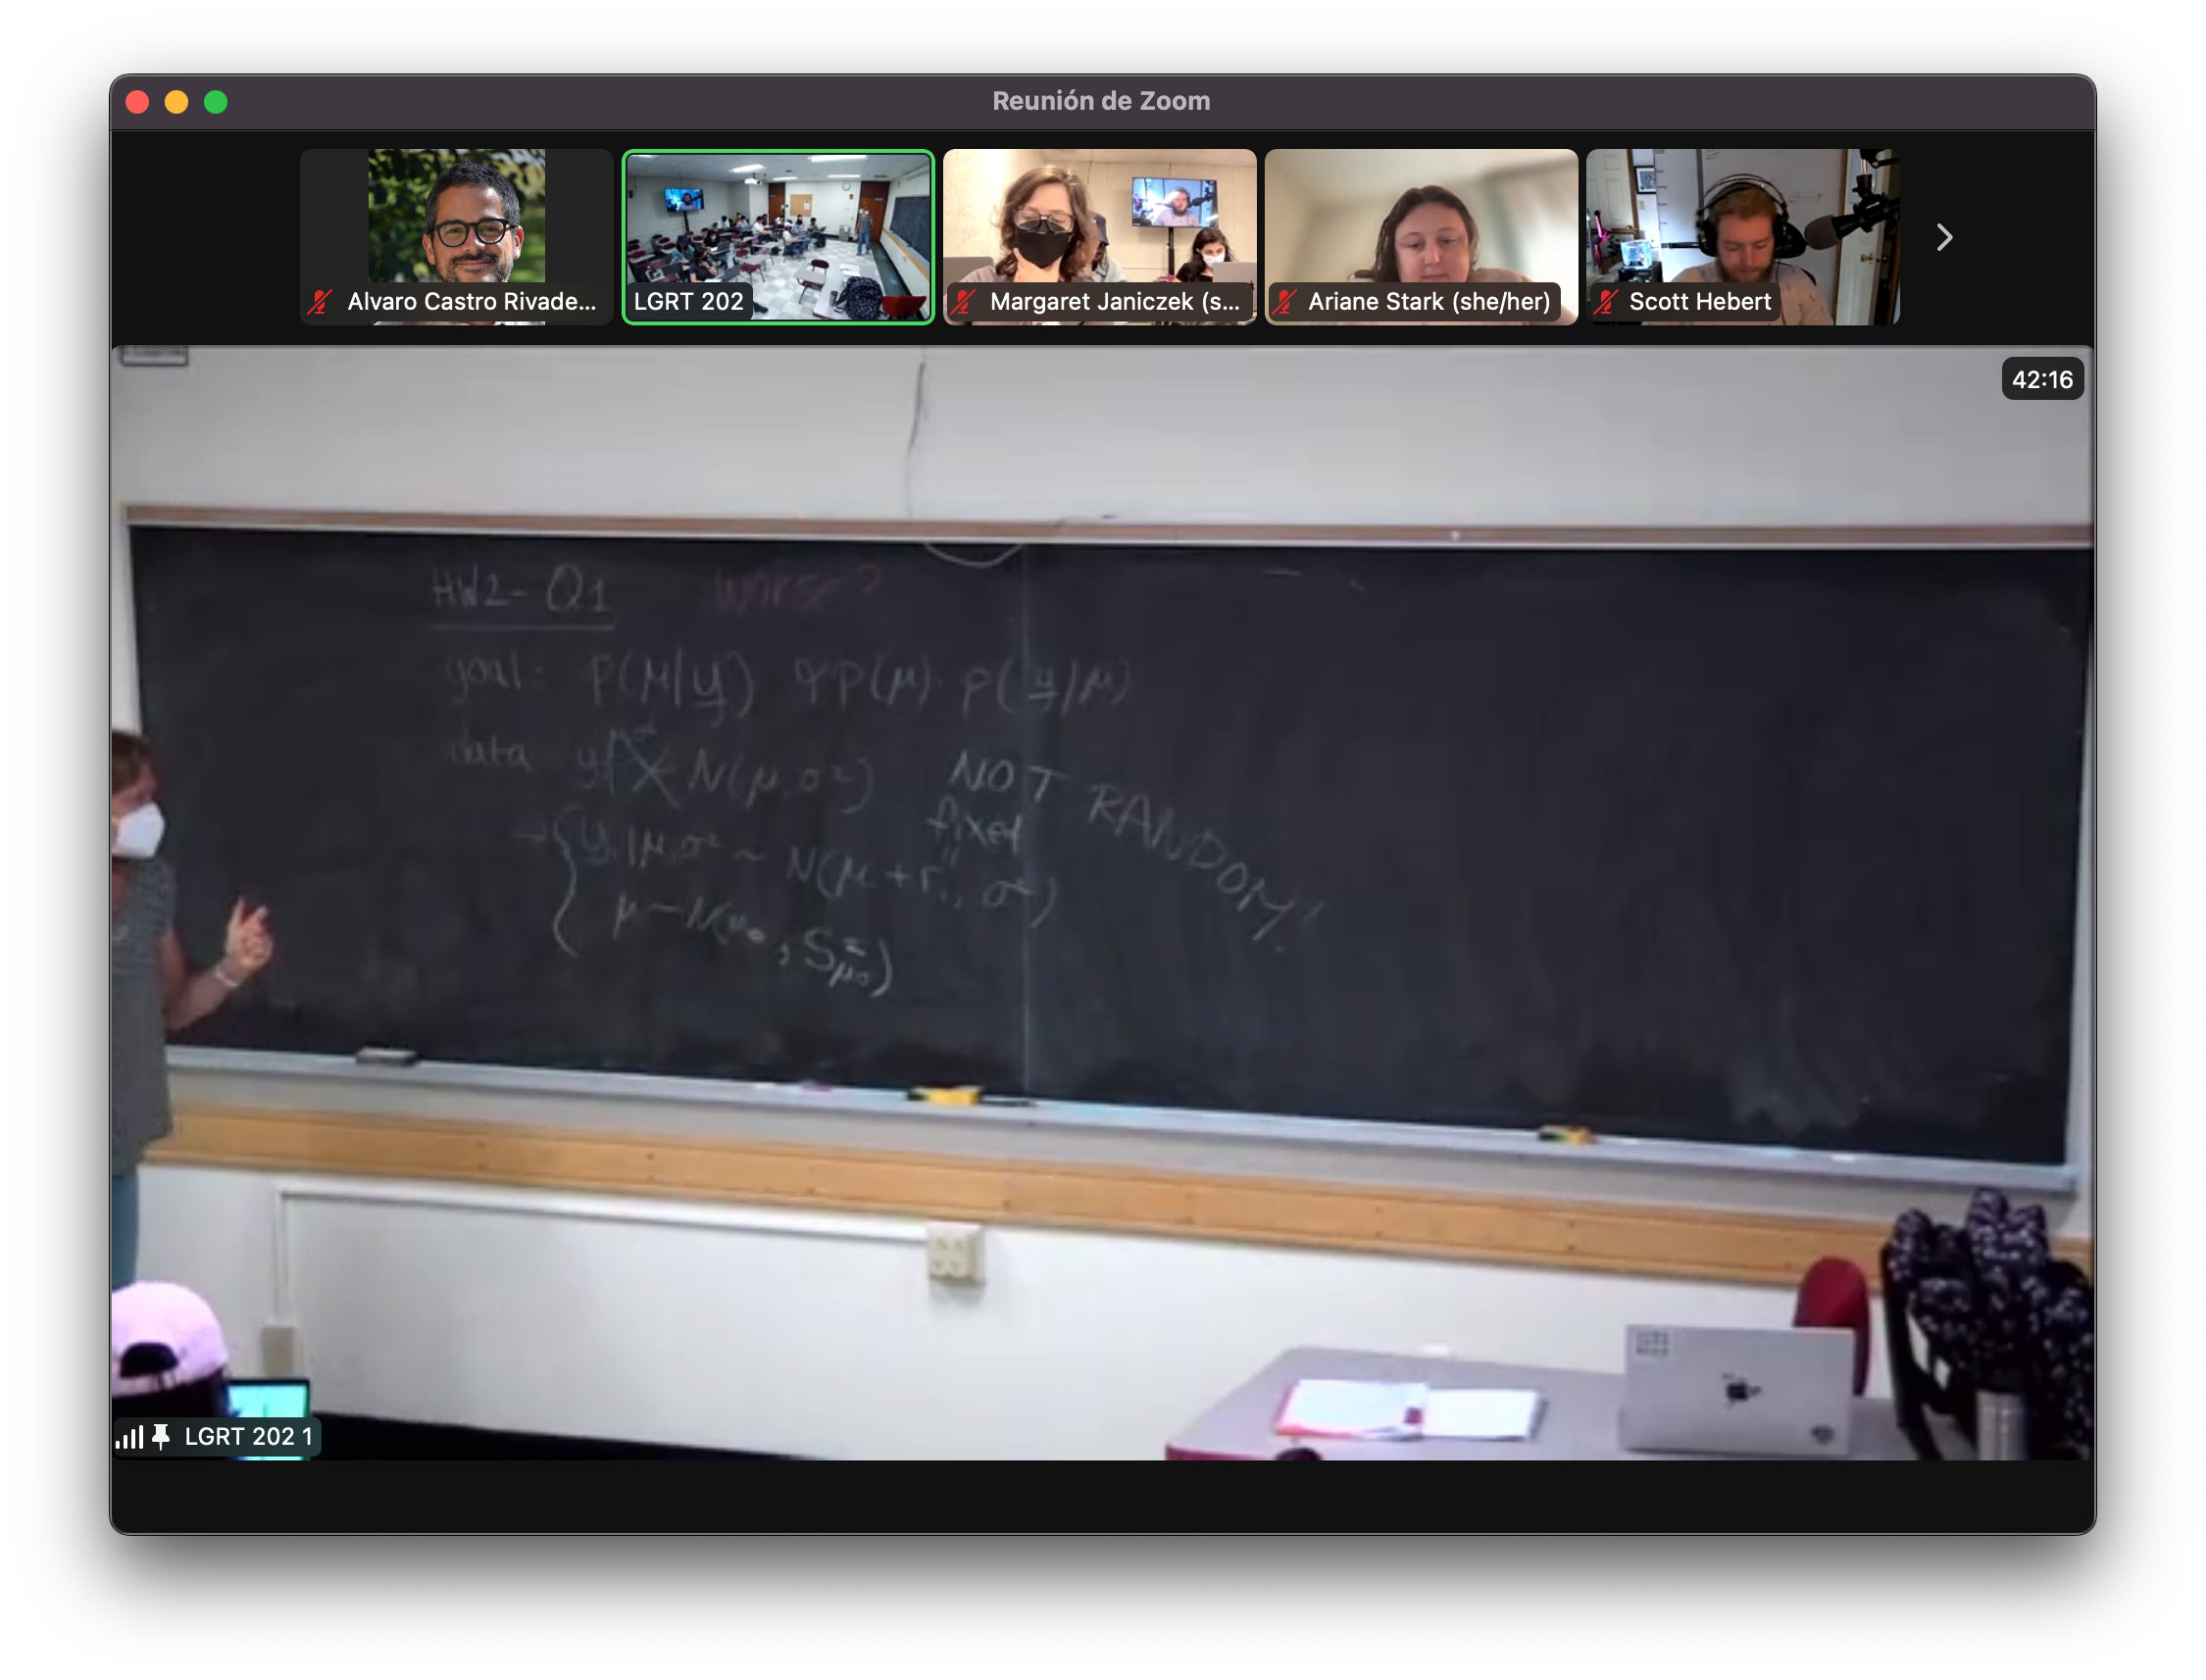 Reunión de Zoom
Alvaro Castro Rivade...
LGRT 202
Margaret Janiczek (s...
Ariane Stark (she/her)
Scott Hebert
42:16
HW2- Q1
worse?
goal: P(μ|y) ∝ P(μ) · P(y|μ)
data y N(μ, σ²)
NOT RANDOM!
fixed
→ { yᵢ|μ,σ² ~ N(μ + rᵢ, σ²)
μ ~ N(μ₀, S²μ₀)
LGRT 202 1